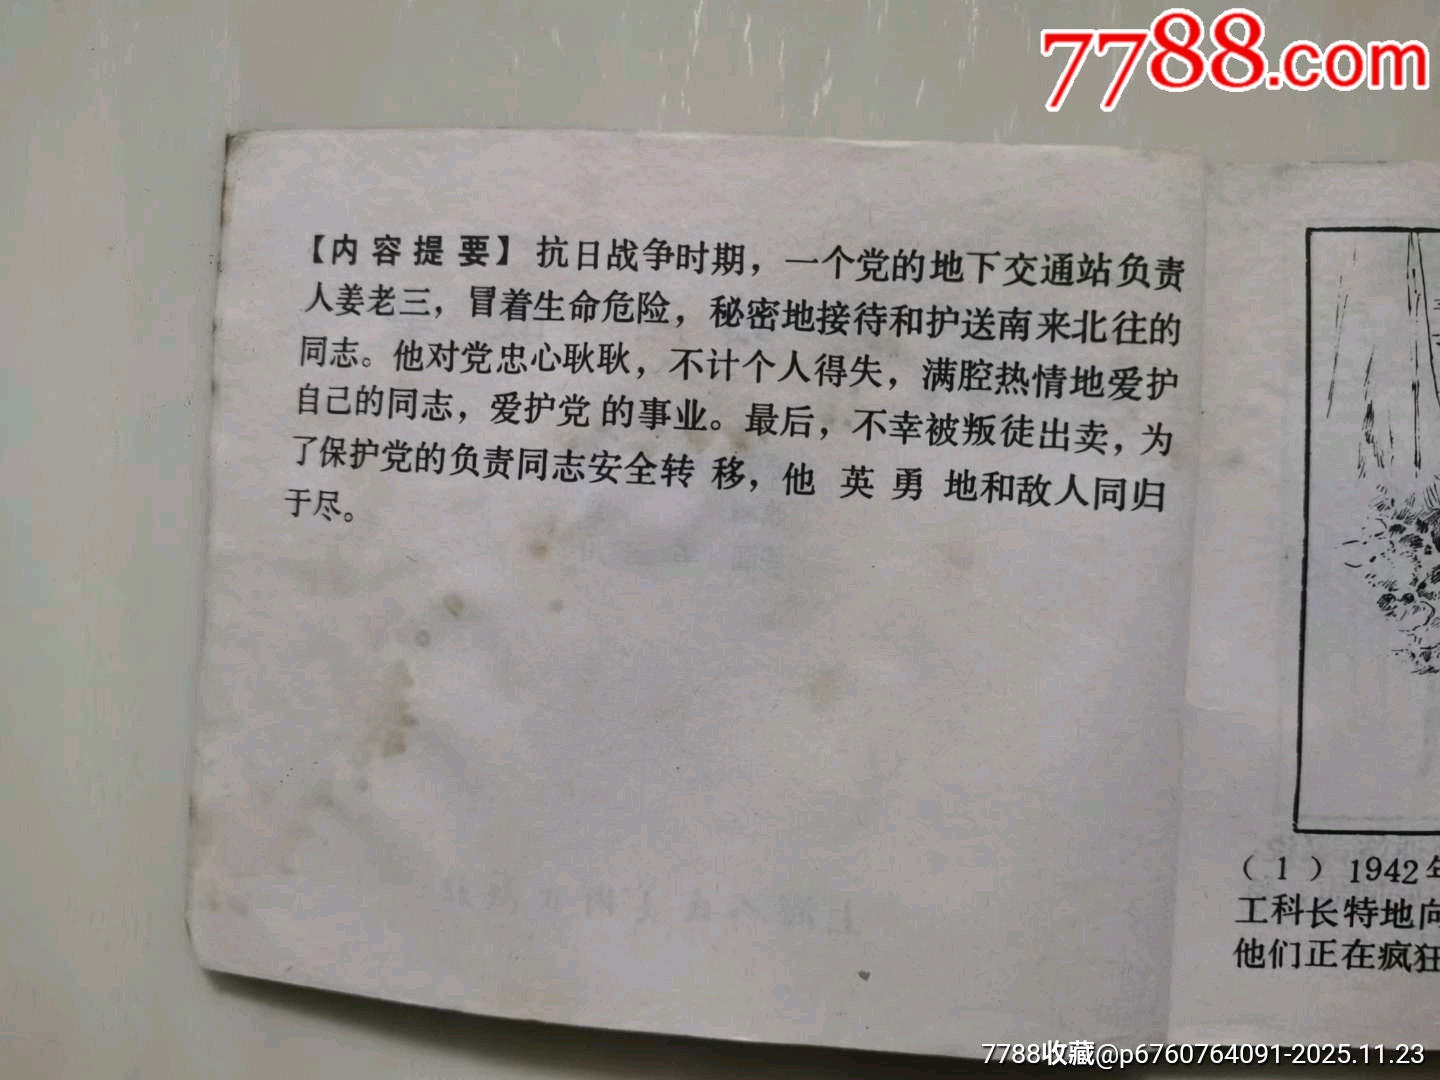 7788.com
【内容提要】抗日战争时期，一个党的地下交通站负责
人姜老三，冒着生命危险，秘密地接待和护送南来北往的
同志。他对党忠心耿耿，不计个人得失，满腔热情地爱护
自己的同志，爱护党的事业。最后，不幸被叛徒出卖，为
了保护党的负责同志安全转移，他英勇地和敌人同归
于尽。
（1）1942年
工科长特地向
他们正在疯狂
7788收藏@p6760764091-2025.11.23